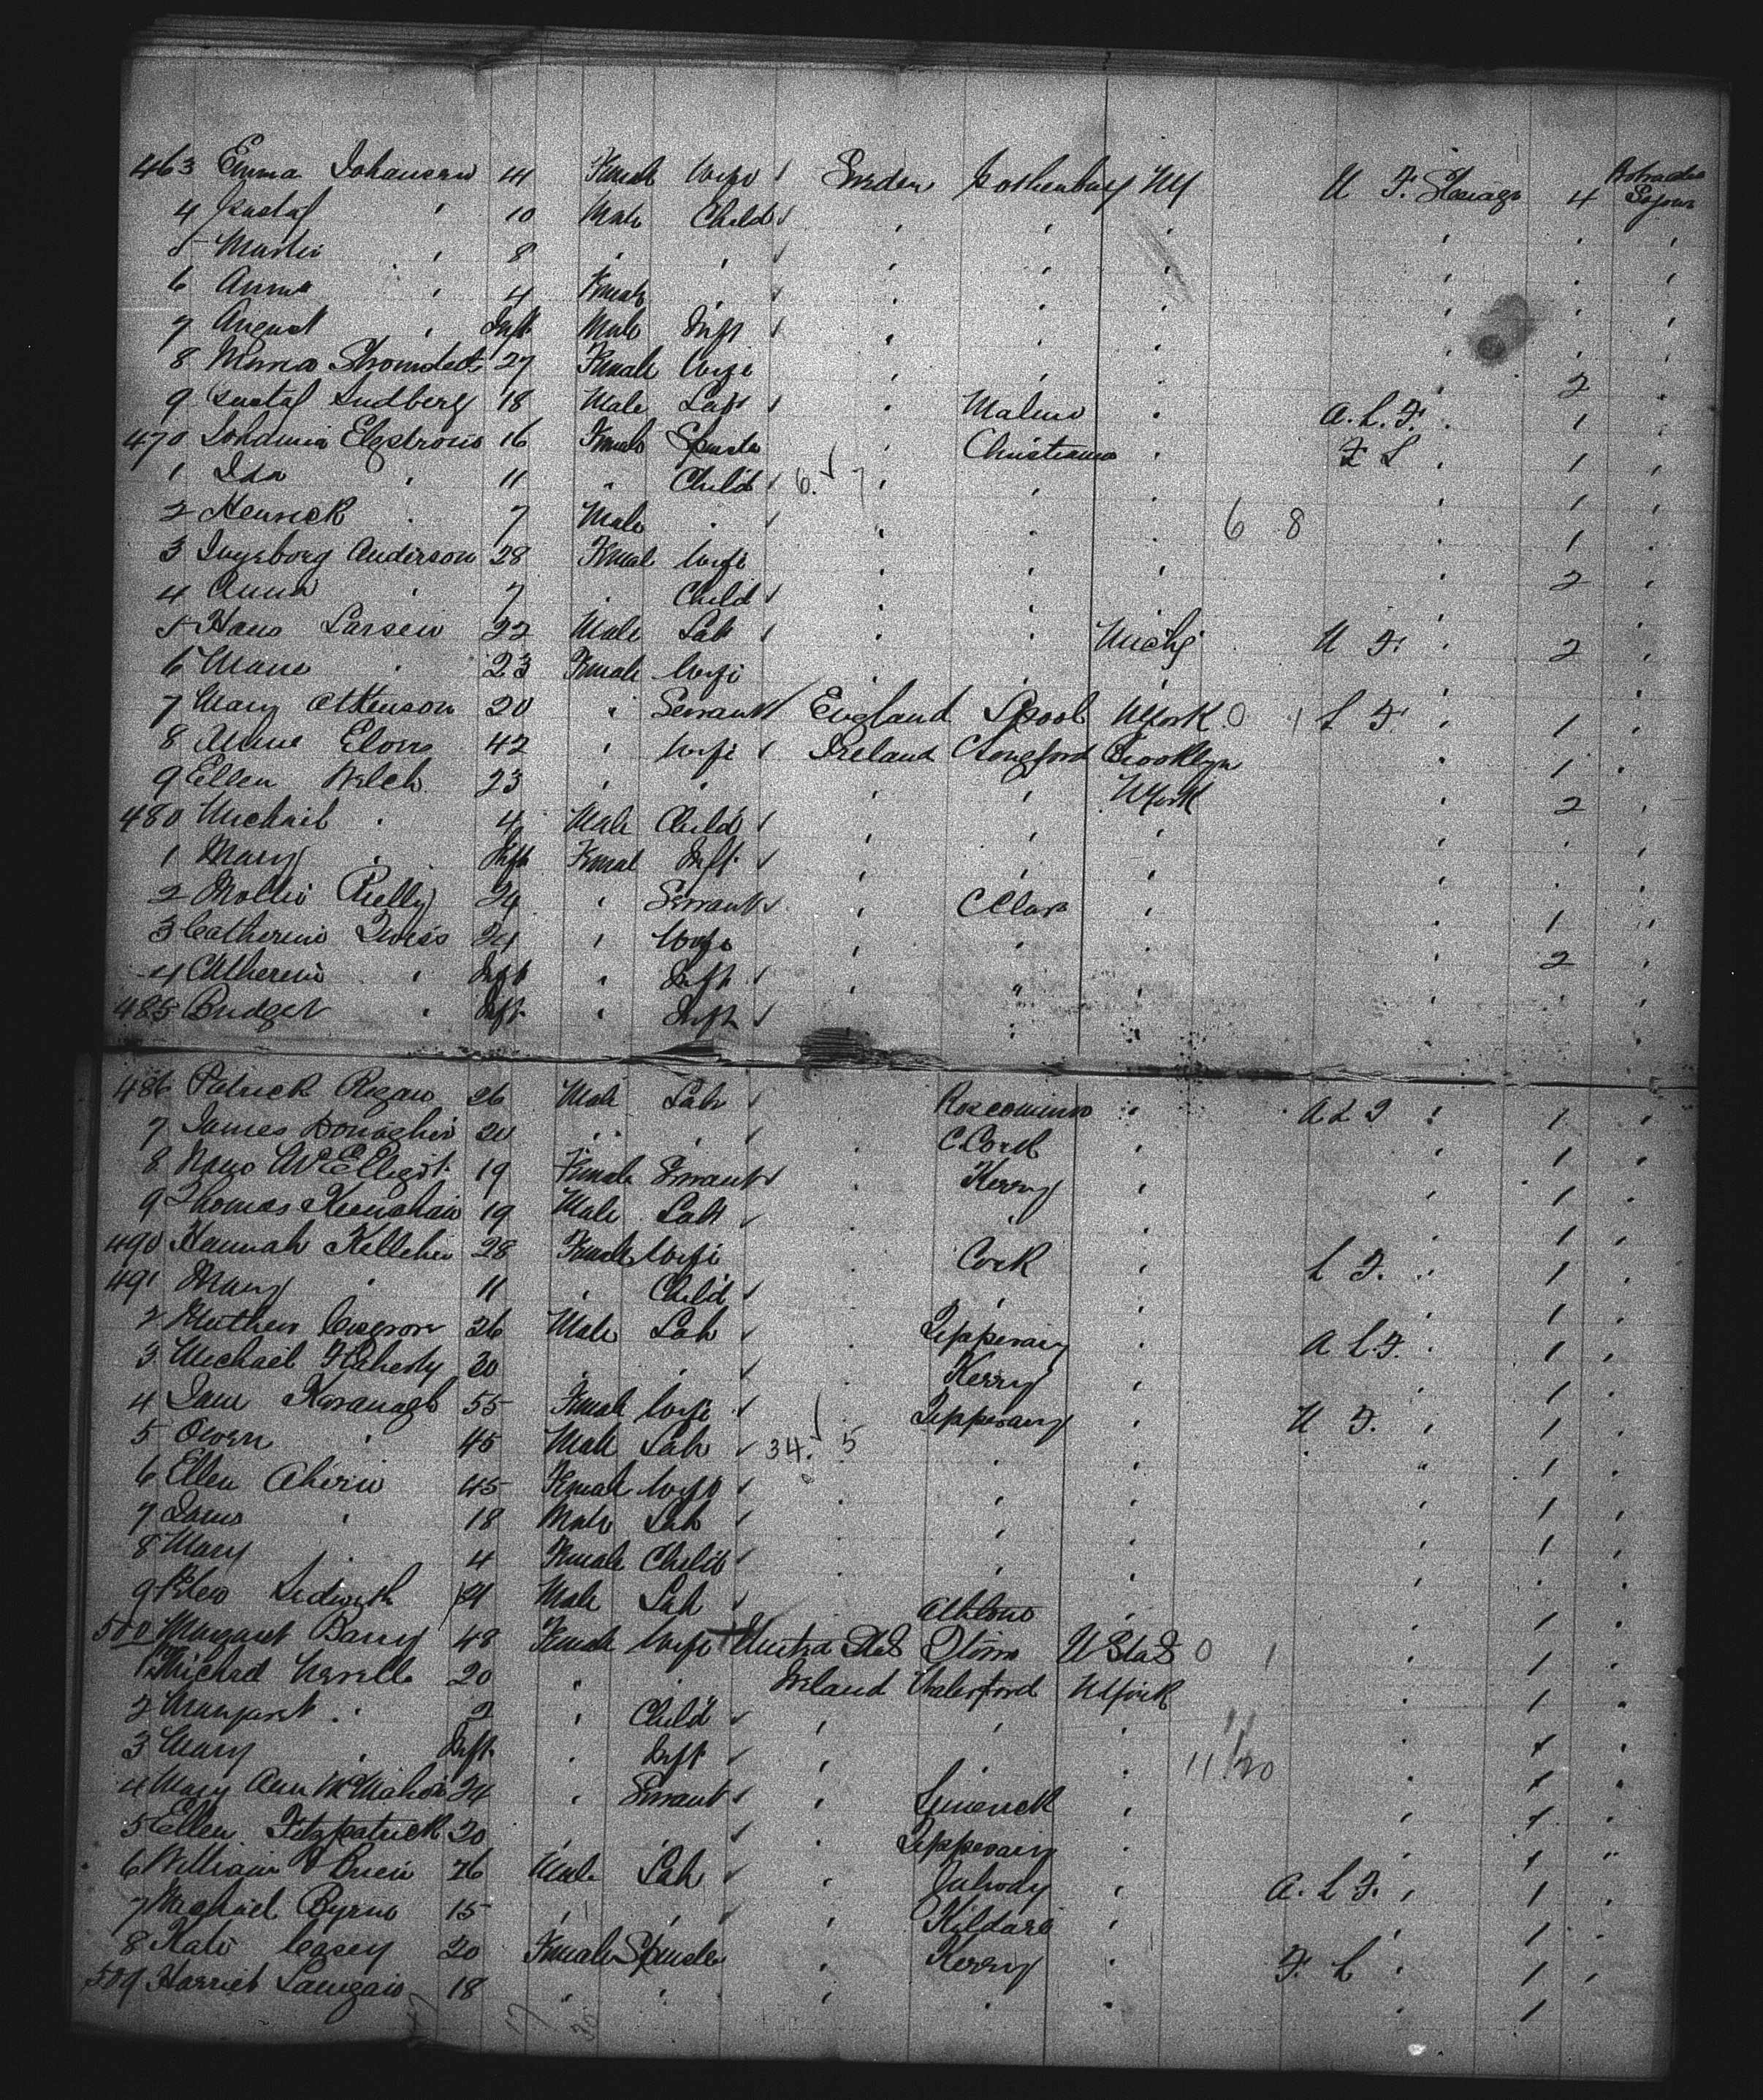 463 Emma Johansen 41 Female Wife Sweden Gothenburg NY U F. Steerage 4 Protracted Sojour
4 Gustaf " 10 Male Child
5 Martin " 8 " "
6 Anna " 4 Female "
7 August " Inft Male Inft
8 Maria 27 Female Wife 2
9 Gustaf Lindberg 18 Male Lab Malmo A. L. F. 1
470 Elgstrom 16 Female Spinster Christiania F L 1
1 Ida " 11 " Child 6. 7 1
2 Henrick " 7 Male " 6 8 1
3 Ingeborg Anderson 28 Female Wife 2
4 Anna " 7 " Child
5 Hans Larsen 22 Male Lab Michg U F. 2
6 Marie " 23 Female Wife
7 Mary Atkenson 20 " Servant England Lpool NYork 0 1 L F. 1
8 Anne 42 " Wife Ireland CLongford Brooklyn 1
9 Ellen Welch 23 " " NYork 2
480 Michael " 4 Male Child
1 Mary " Inft Female Inft
2 Mollie Reilly 24 " Servant CClare 1
3 Catherine 24 " Wife 2
4 Catherine " Inft " Inft
485 Bridget " Inft " Inft
486 Patrick Regan 26 Male Lab Roscommon A L F 1
7 James 20 " " C.Cork 1
8 McElligot 19 Female Servant Kerry 1
9 Thomas 19 Male Lab 1
490 Hannah Kelleher 28 Female Wife Cork L F. 1
491 Mary " 11 " Child 1
2 Mathew Cosgrove 26 Male Lab Tipperary A L.F. 1
3 Michael Flaherty 30 " " Kerry 1
4 Jane Kavanagh 55 Female Wife Tipperary U F. 1
5 Owen " 45 Male Lab 34. 5 1
6 Ellen Aherin 45 Female Wife 1
7 James " 18 Male Lab 1
8 Mary " 4 Female Child
9 Peter 21 Male Lab Athlone 1
500 Margaret Barry 48 Female Wife United Stas U Stas 0 1 1
1 20 " " Ireland Waterford NYork 1
2 Margaret " 2 " Child 1
3 Mary " Inft " Inft 11/20 1
4 Mary Ann McMahon 24 " Servant Limerick 1
5 Ellen Fitzpatrick 20 " " Tipperary 1
6 William OBrien 26 Male Lab A. L F. 1
7 Michael Byrne 15 " " Kildare 1
8 Kate Casey 20 Female Spinster Kerry F. L 1
509 Harriet 18 " " 1